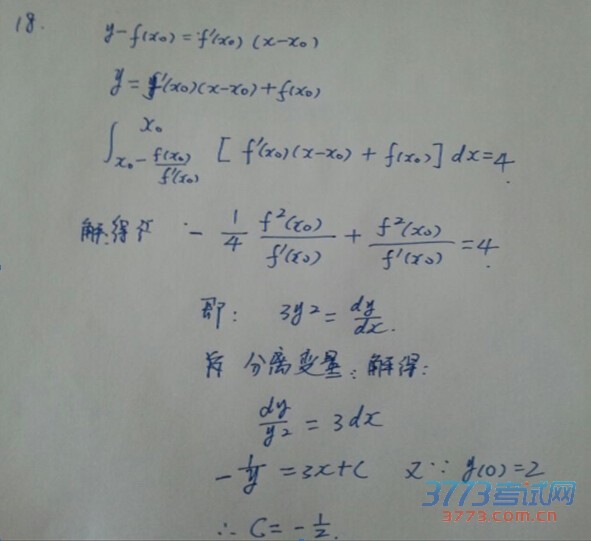 18.
y-f(x₀)=f'(x₀)(x-x₀)
y=f'(x₀)(x-x₀)+f(x₀)
∫_{x₀-f(x₀)/f'(x₀)}^{x₀} [f'(x₀)(x-x₀)+f(x₀)]dx=4
解得 -1/4 f²(x₀)/f'(x₀) + f²(x₀)/f'(x₀) =4
即: 3y²=dy/dx.
分离变量:解得:
dy/y²=3dx
-1/y=3x+C 又∵y(0)=2
∴C=-1/2.
3773考试网
3773.com.cn